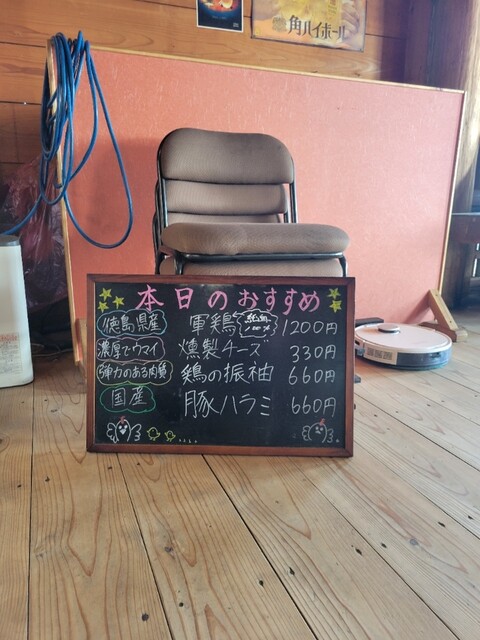 角ハイボール
本日のおすすめ
徳島県産 軍鶏 1200円
濃厚でウマイ 燻製チーズ 330円
弾力のある肉質 鶏の振袖 660円
国産 豚ハラミ 660円